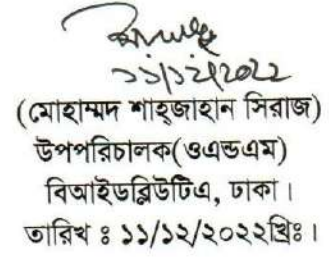 ১১/১২/2022
(মোহাম্মদ শাহ্জাহান সিরাজ)
উপপরিচালক(ওএন্ডএম)
বিআইডব্লিউটিএ, ঢাকা।
তারিখ ঃ ১১/১২/২০২২খ্রিঃ।